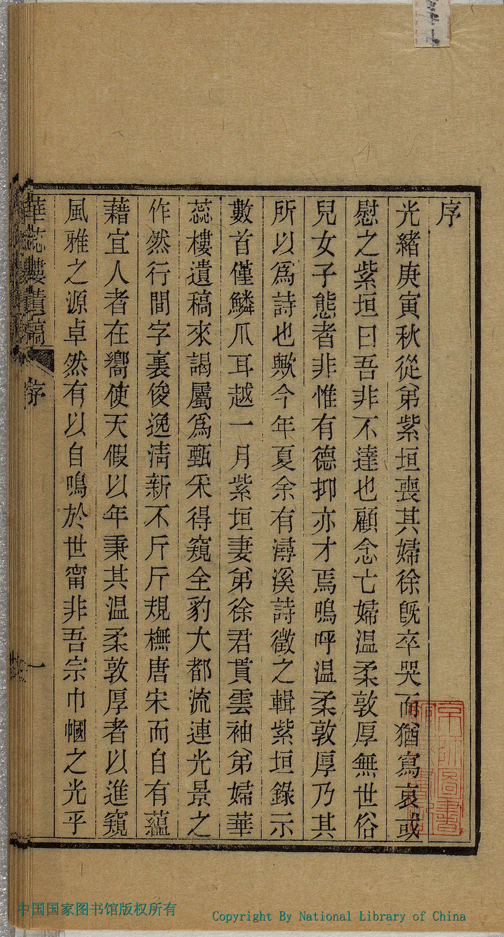 序
光緒庚寅秋從弟紫垣喪其婦徐旣卒哭而猶寫哀或
慰之紫垣曰吾非不達也顧念亡婦溫柔敦厚無世俗
兒女子態者非惟有德抑亦才焉嗚呼溫柔敦厚乃其
所以爲詩也歟今年夏余有潯溪詩徵之輯紫垣錄示
數首僅鱗爪耳越一月紫垣妻弟徐君貫雲袖弟婦華
蕊樓遺稿來謁屬爲甄采得窺全豹大都流連光景之
作然行間字裏俊逸淸新不斤斤規橅唐宋而自有蘊
藉宜人者在嚮使天假以年秉其溫柔敦厚者以進窺
風雅之源卓然有以自鳴於世甯非吾宗巾幗之光乎
華蕊樓遺稿
序
一
中国国家图书馆版权所有
Copyright By National Library of China